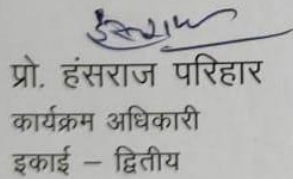 प्रो. हंसराज परिहार
कार्यक्रम अधिकारी
इकाई – द्वितीय